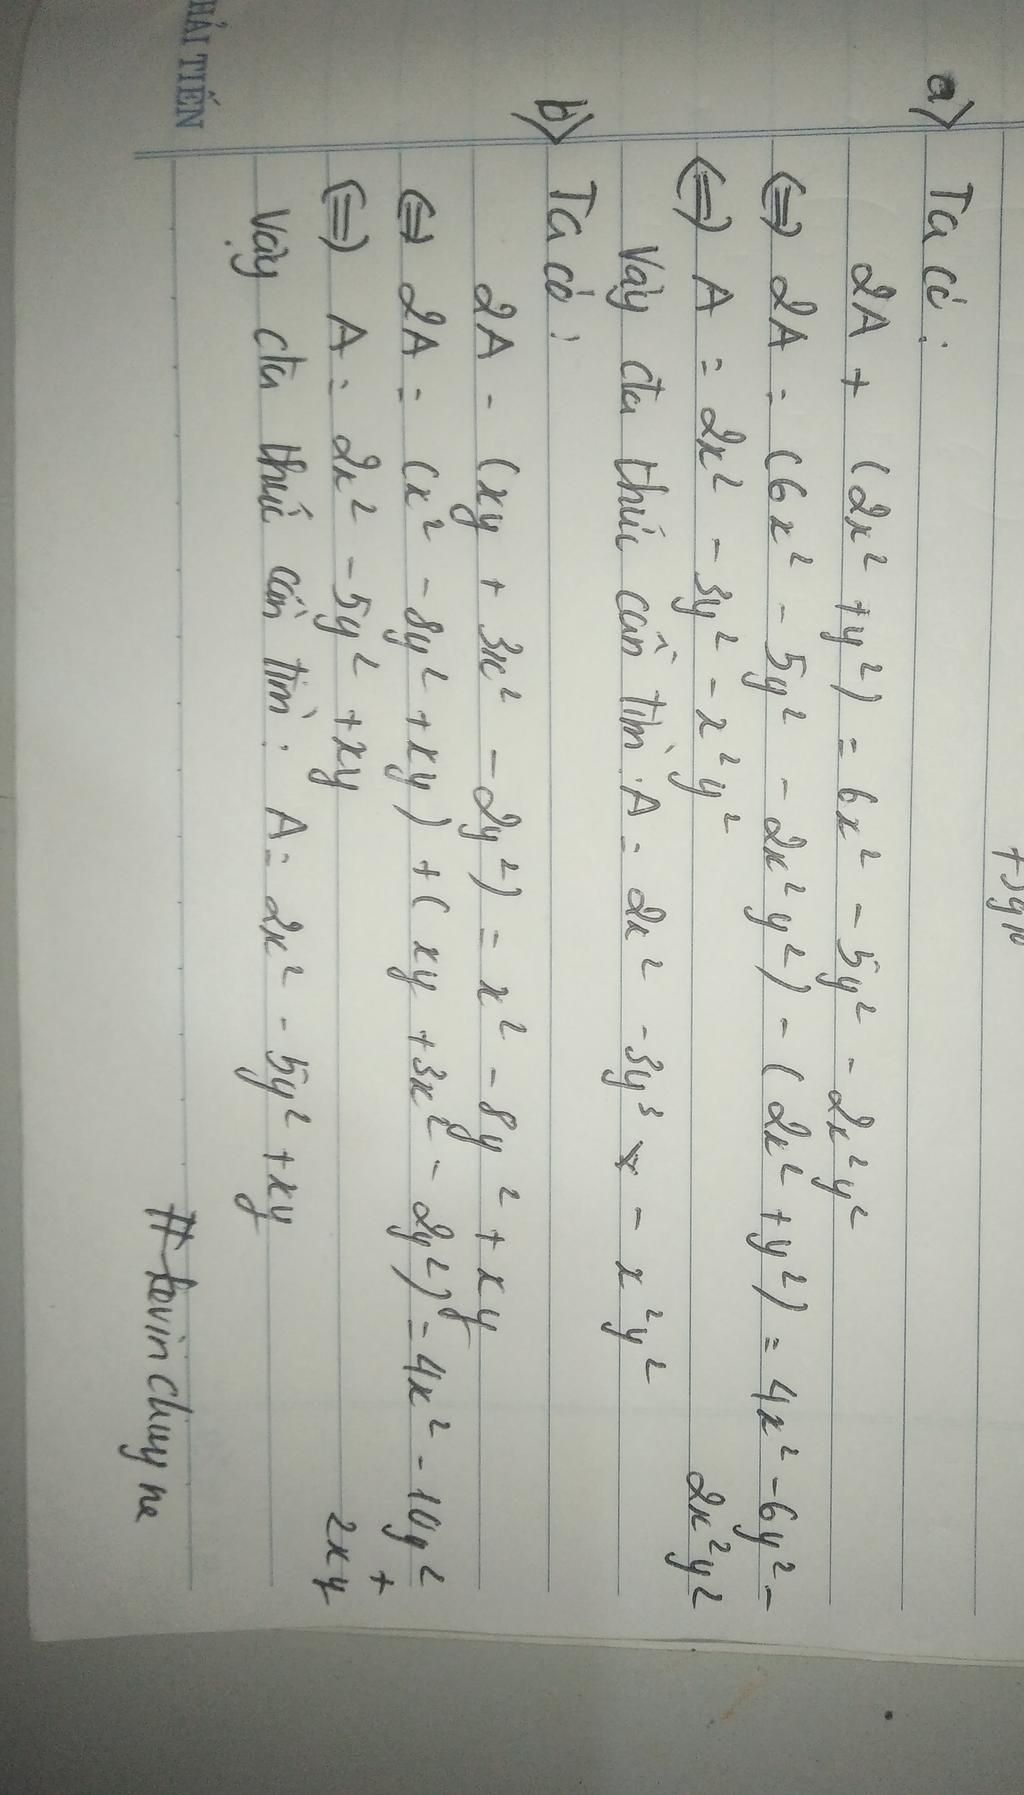 a) Ta có:
2A + (2x² + y²) = 6x² - 5y² - 2x²y²
(=) 2A = (6x² - 5y² - 2x²y²) - (2x² + y²) = 4x² - 6y² -
2x²y²
(=) A = 2x² - 3y² - x²y²
Vậy đa thức cần tìm: A = 2x² - 3y³ - x²y²
b) Ta có:
2A - (xy + 3x² - 2y²) = x² - 8y² + xy
(=) 2A = (x² - 8y² + xy) + (xy + 3x² - 2y²) = 4x² - 10y² +
2xy
(=) A = 2x² - 5y² + xy
Vậy đa thức cần tìm: A = 2x² - 5y² + xy
HẢI TIẾN